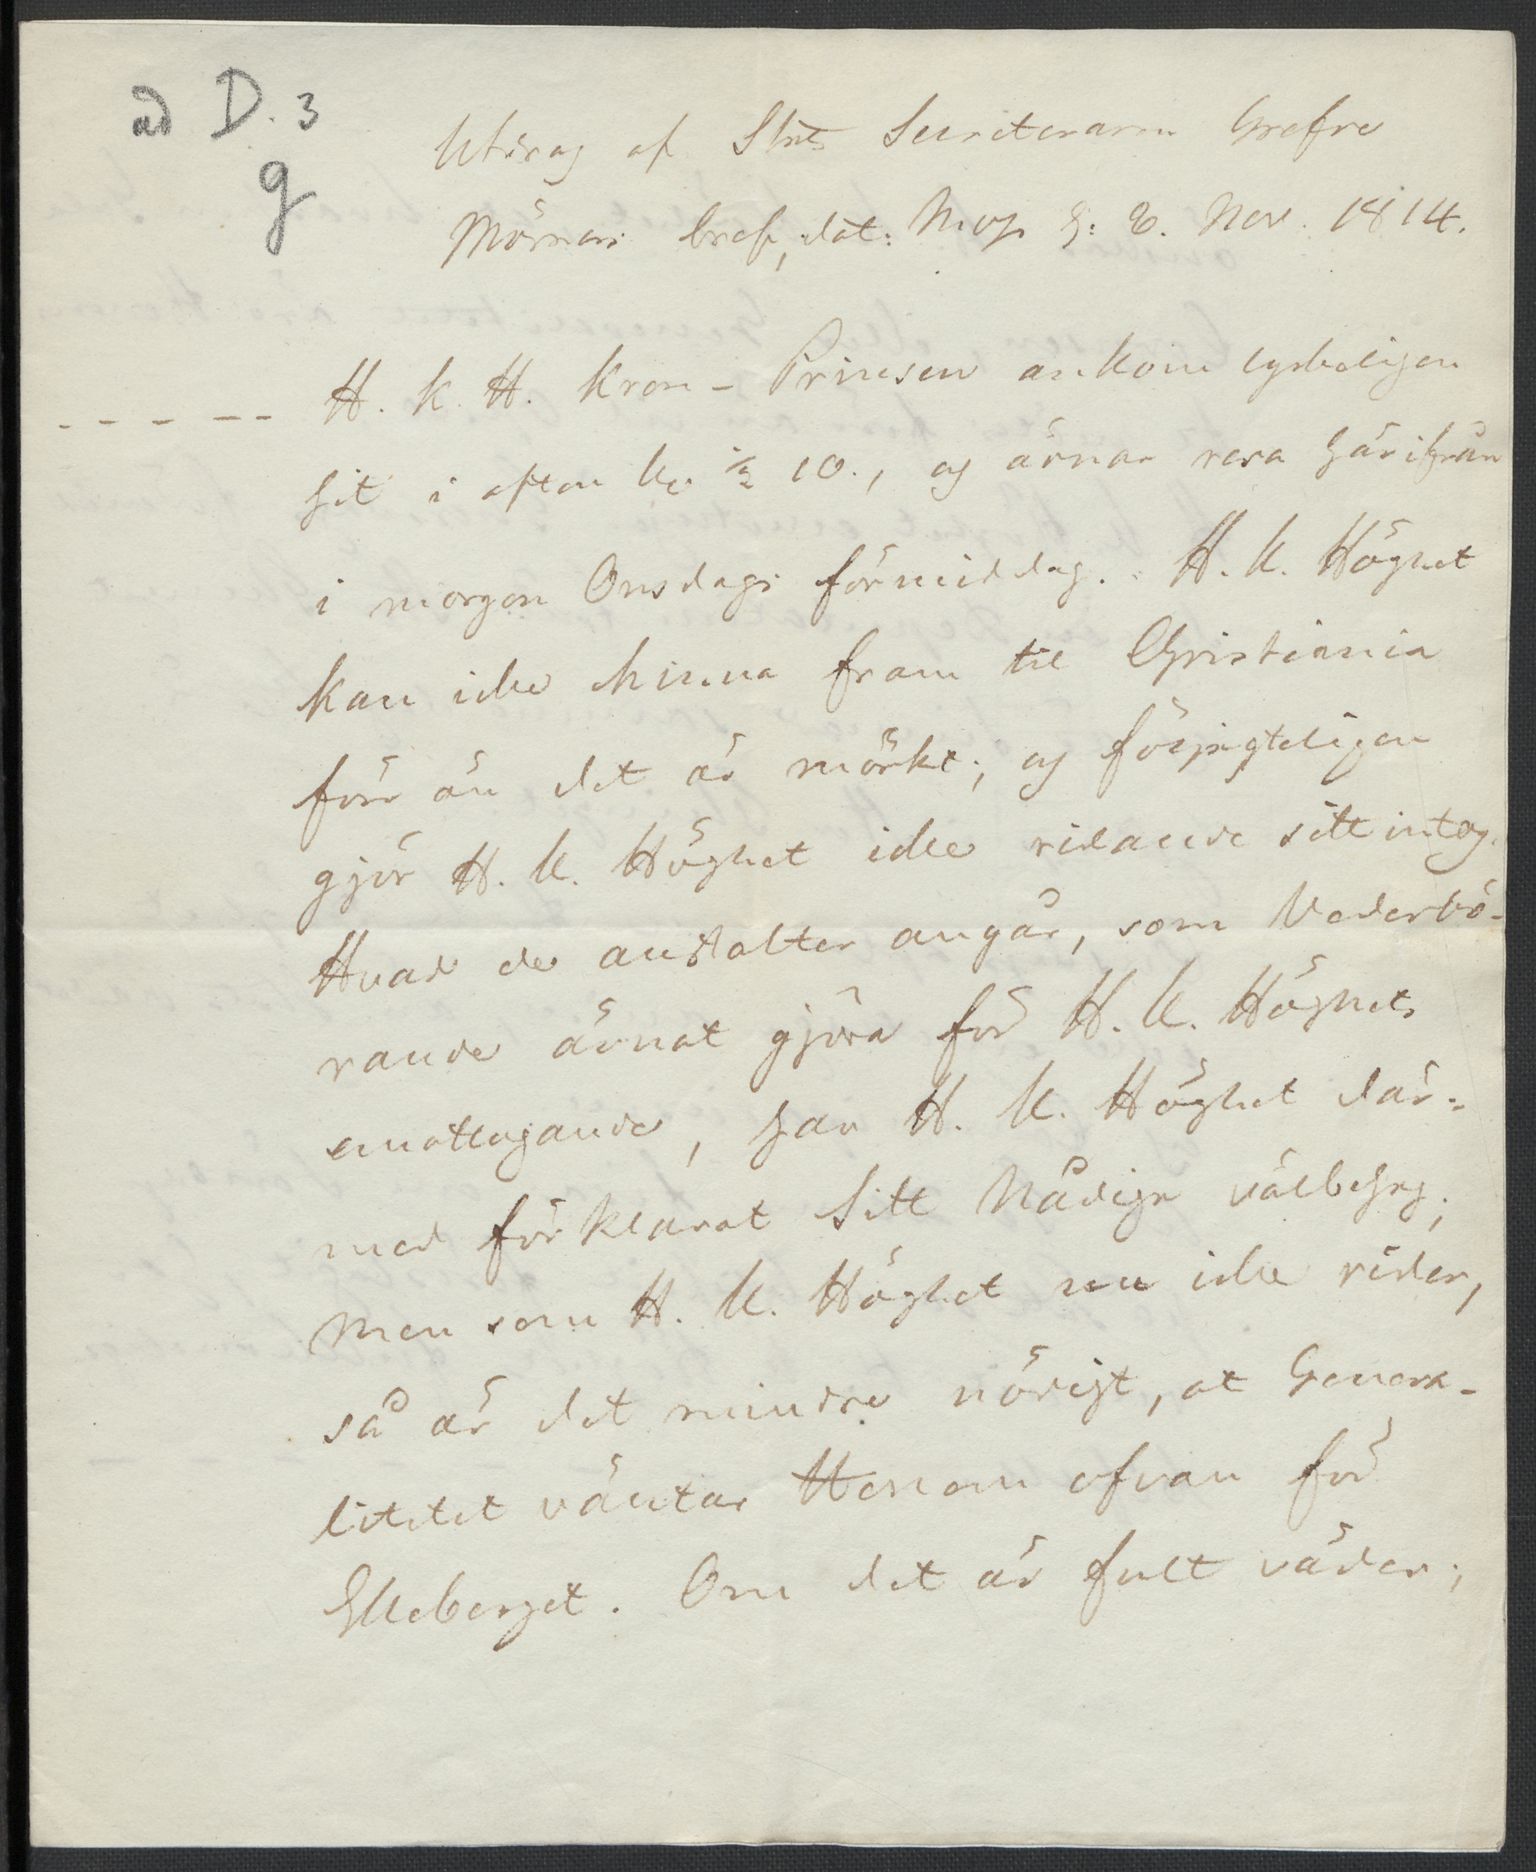 ad D. 3
g
Utdrag af Stats Secreteraren Grefve
Mörners bref, dat: Moss d: 8. Nov. 1814.
- - - - - H. K. H. Kron-Prinsen ankom lyckeligen
hit i afton kl. ½ 10., og ärnar resa härifrån
i morgon Onsdags förmiddag. H. K. Höghet
kan icke hinna fram til Christiania
förr än det är mörkt; og försigteligen
gjör H. K. Höghet icke ridande sitt intog.
Hvad de anstalter angår, som Vederbö-
rande ärnat gjöra för H. K. Höghets
emottagande, har H. K. Höghet där-
med förklarat Sitt Nådiga välbehag;
men som H. K. Höghet nu icke rider,
så är det mindre nödigt, at Genera-
litetet väntar Honom ofvan för
Elleberget. Om det är fult väder;